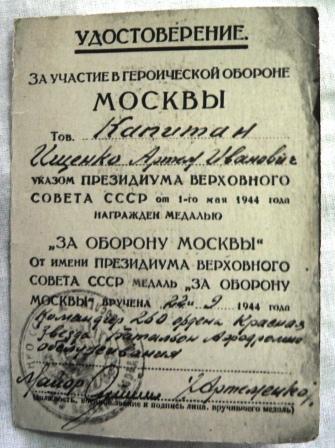 УДОСТОВЕРЕНИЕ.
ЗА УЧАСТИЕ В ГЕРОИЧЕСКОЙ ОБОРОНЕ
МОСКВЫ
Тов. Капитан
Ищенко Артем Иванович
УКАЗОМ ПРЕЗИДИУМА ВЕРХОВНОГО
СОВЕТА СССР от 1-го мая 1944 года
НАГРАЖДЕН МЕДАЛЬЮ
„ЗА ОБОРОНУ МОСКВЫ“
ОТ ИМЕНИ ПРЕЗИДИУМА ВЕРХОВНОГО
СОВЕТА СССР МЕДАЛЬ „ЗА ОБОРОНУ
МОСКВЫ“ ВРУЧЕНА 22 9 1944 года
Командир 260 ордена Красная
звезда Батальон Аэродромно
обслуживания
Майор Артеменко
(должность, звание и подпись лица, вручившего медаль)